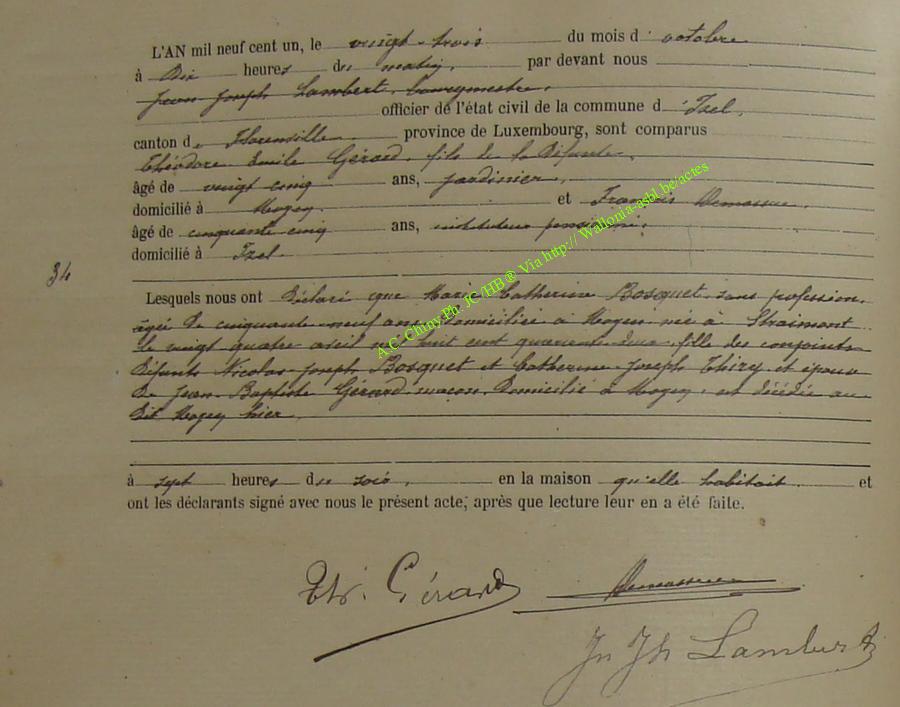 L'AN mil neuf cent un, le vingt-trois du mois d'octobre
à dix heures du matin, par devant nous
Jean-Joseph Lambert, bourgmestre,
officier de l'état civil de la commune d'Izel,
canton de Florenville, province de Luxembourg, sont comparus
Théodore Emile Gérard, fils de la défunte,
âgé de vingt cinq ans, jardinier,
domicilié à Moyen, et François Demasure,
âgé de cinquante cinq ans, instituteur pensionné,
domicilié à Izel.
34
Lesquels nous ont déclaré que Marie Catherine Bosquet, sans profession,
âgée de cinquante-neuf ans, domiciliée à Moyen, née à Straimont
le vingt quatre avril mil huit cent quarante-deux, fille des conjoints
défunts Nicolas-Joseph Bosquet et Catherine-Joseph Thiry et épouse
de Jean-Baptiste Gérard, maçon, domicilié à Moyen, est décédée au
dit Moyen hier,
à sept heures du soir, en la maison qu'elle habitait et
ont les déclarants signé avec nous le présent acte, après que lecture leur en a été faite.
Th. Gérard
Jn Jh Lambert
A.C. Chiny.Ph. JC/HB® Via http://Wallonia-asbl.be/actes